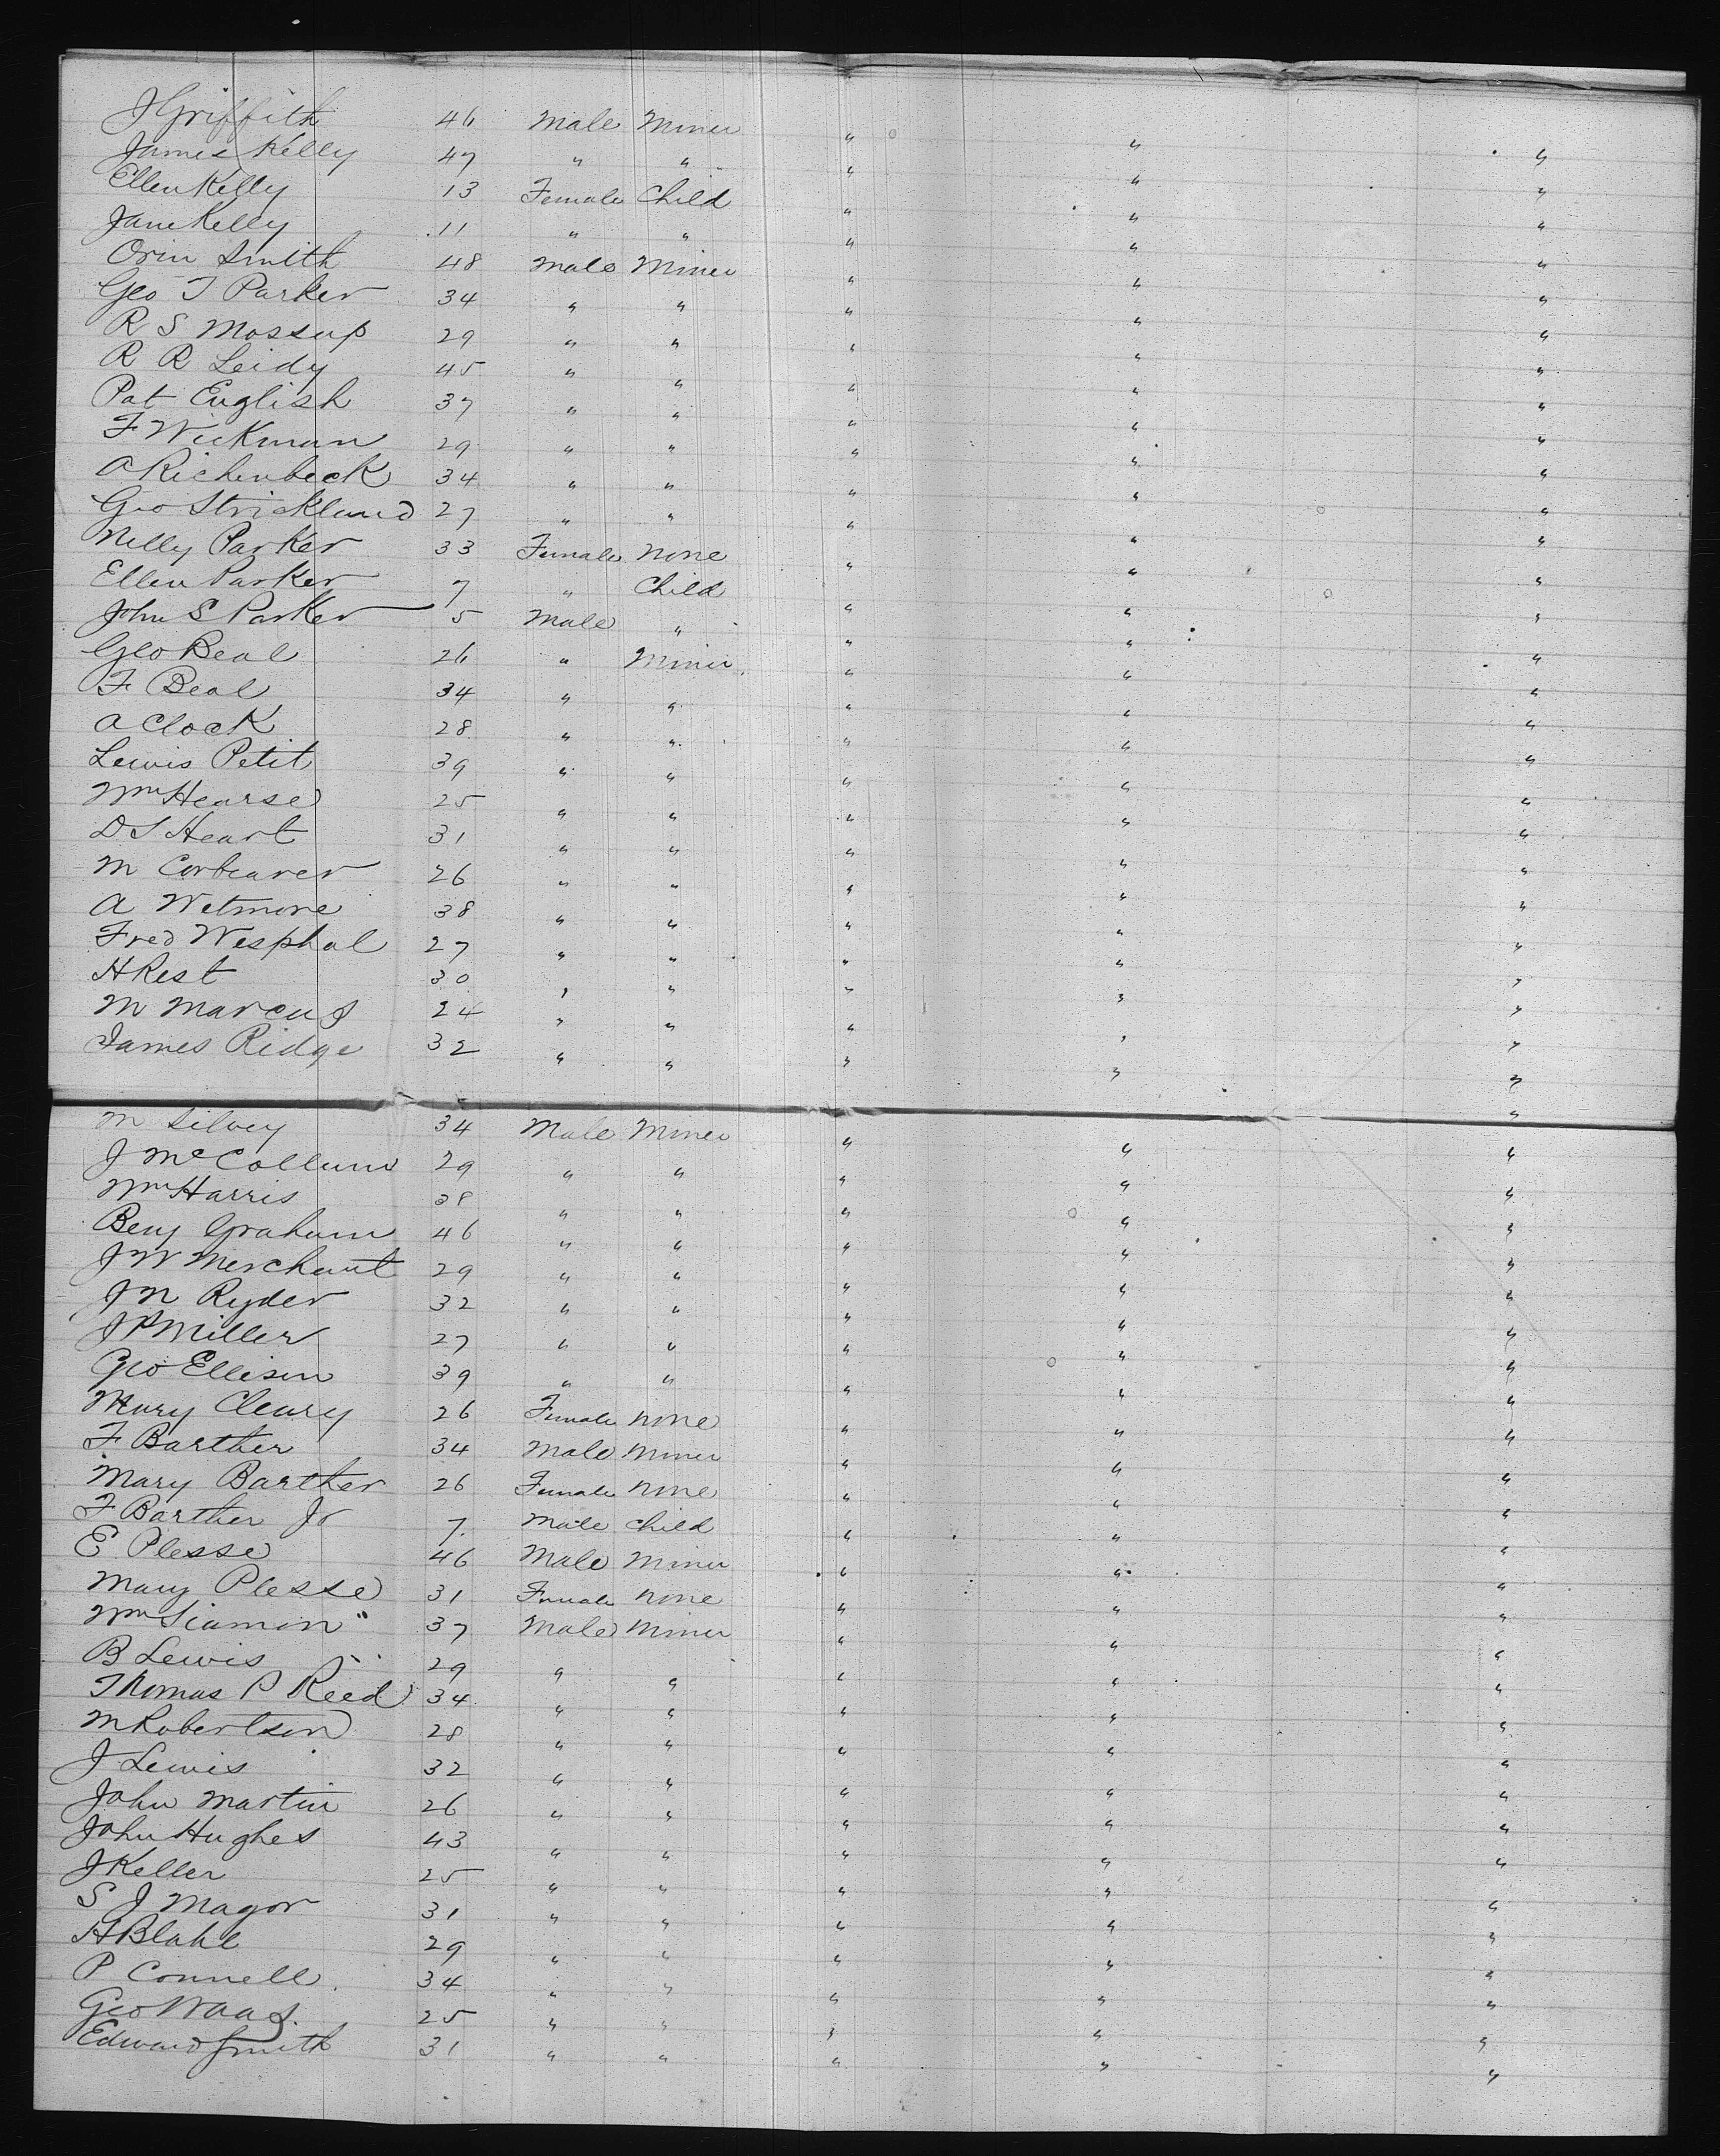 J Griffith 46 Male Miner " " "
James Kelly 47 " " " " "
Ellen Kelly 13 Female Child " " "
Jane Kelly 11 " " " " "
Orin Smith 48 Male Miner " " "
Geo T Parker 34 " " " " "
R S Mossup 29 " " " " "
R R Leidy 45 " " " " "
Pat English 37 " " " " "
F Wickman 29 " " " " "
A Richenbeck 34 " " " " "
Geo Strickland 27 " " " " "
Nelly Parker 33 Female None " " "
Ellen Parker 7 " Child " " "
John S Parker 5 Male " " " "
Geo Beal 26 " Miner " " "
F Beal 34 " " " " "
A Clock 28 " " " " "
Lewis Petit 39 " " " " "
Wm Hearse 25 " " " " "
D S Heart 31 " " " " "
M Corbearer 26 " " " " "
A Wetmore 38 " " " " "
Fred Wesphal 27 " " " " "
H Rest 30 " " " " "
M Marcus 24 " " " " "
James Ridge 32 " " " " "
M Silvey 34 Male Miner " " "
J McCollum 29 " " " " "
Wm Harris 38 " " " " "
Benj Graham 46 " " " " "
J W Merchant 29 " " " " "
J N Ryder 32 " " " " "
J P Miller 27 " " " " "
Geo Ellison 39 " " " " "
Mary Cleary 26 Female None " " "
F Barther 34 Male Miner " " "
Mary Barther 26 Female None " " "
F Barther Jr 7 Male Child " " "
E Plesse 46 Male Miner " " "
Mary Plesse 31 Female None " " "
Wm Siamon 37 Male Miner " " "
B Lewis 29 " " " " "
Thomas P Reed 34 " " " " "
M Robertson 28 " " " " "
J Lewis 32 " " " " "
John Martin 26 " " " " "
John Hughes 43 " " " " "
J Keller 25 " " " " "
S J Magor 31 " " " " "
H Blake 29 " " " " "
P Connell 34 " " " " "
Geo Waas 25 " " " " "
Edward Smith 31 " " " " "